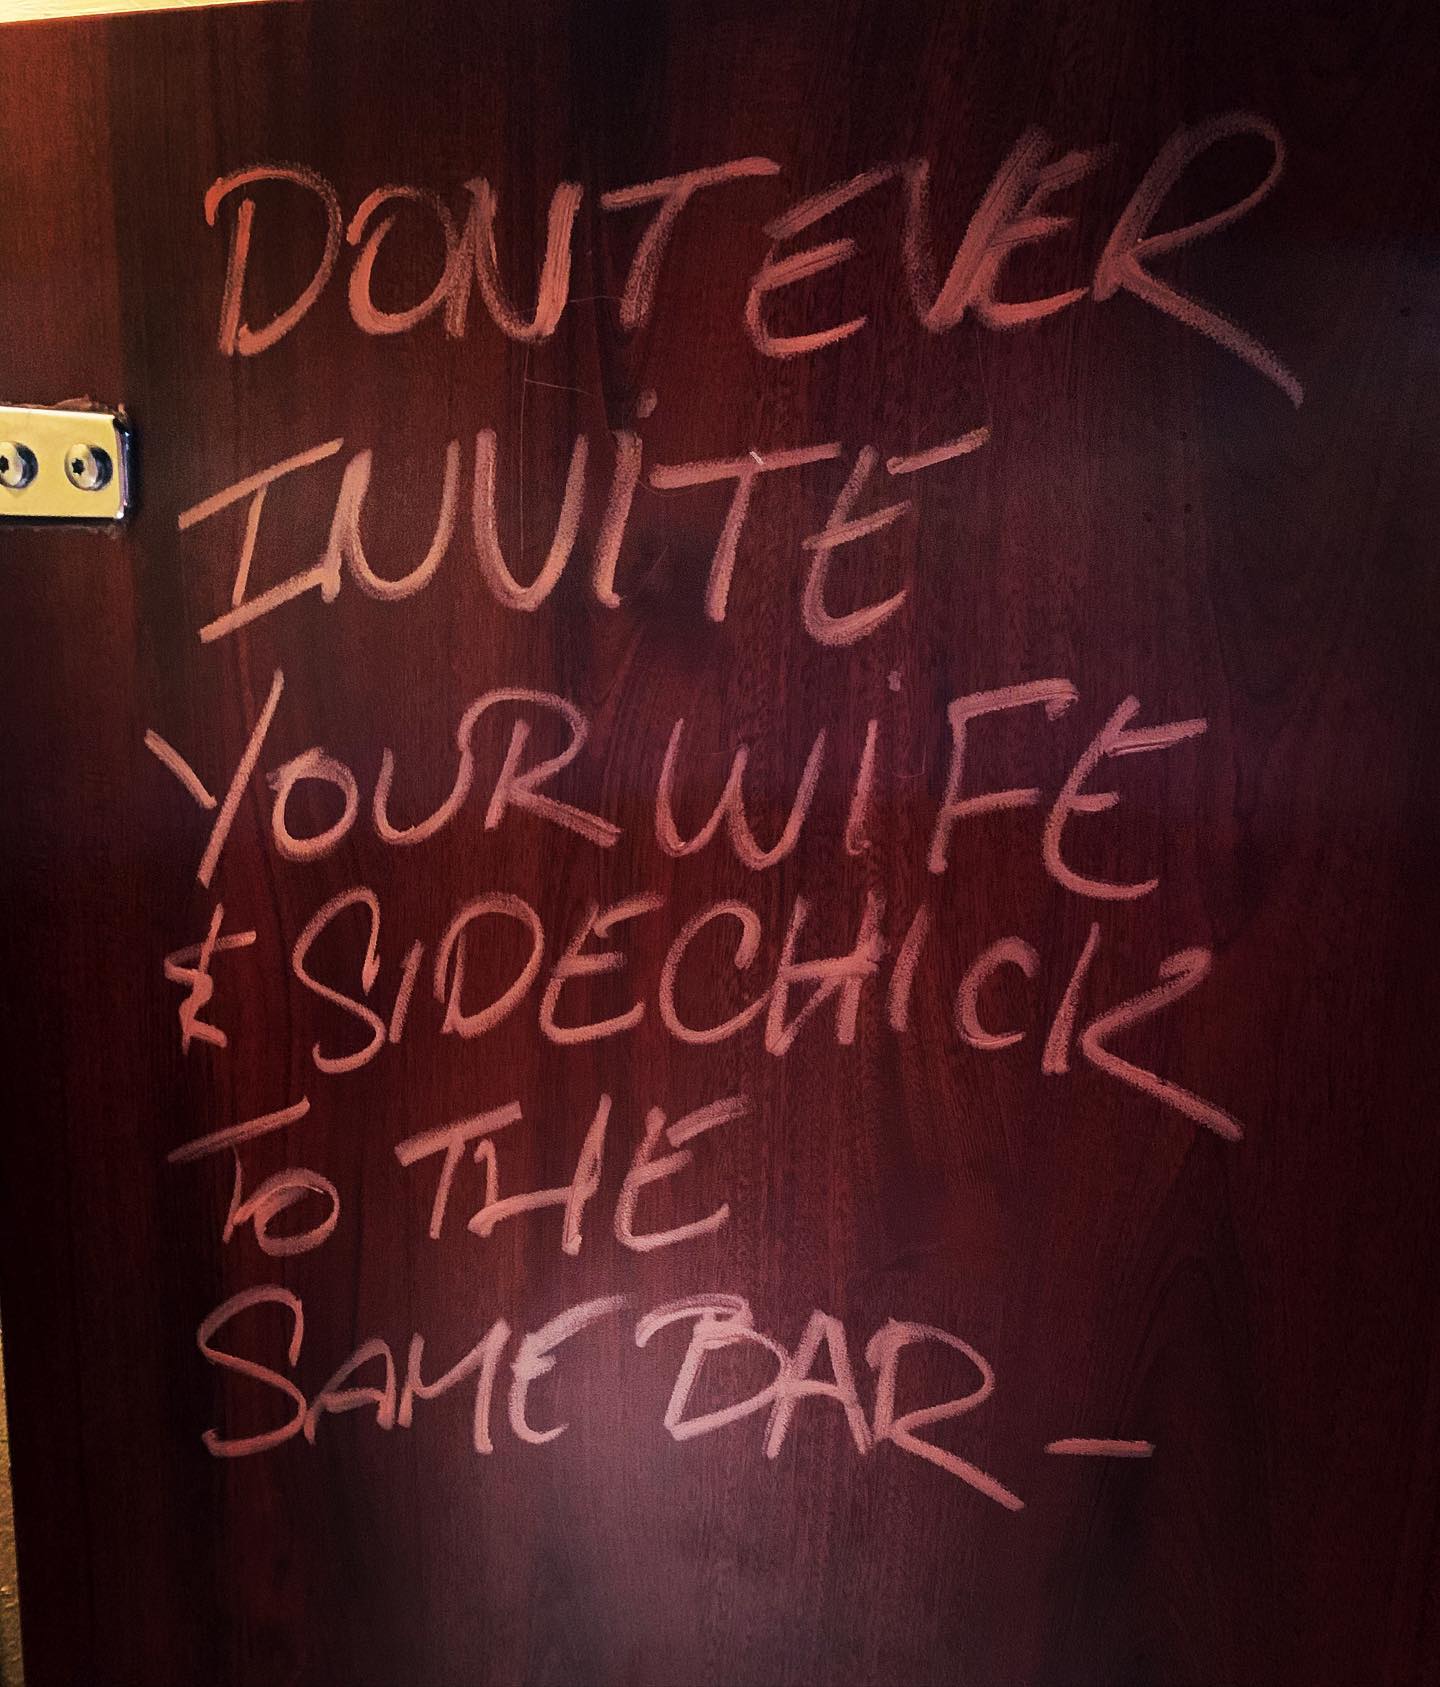 DONT EVER
INViTE
YOUR WiFE
& SIDECHICK
To THE
SAME BAR _